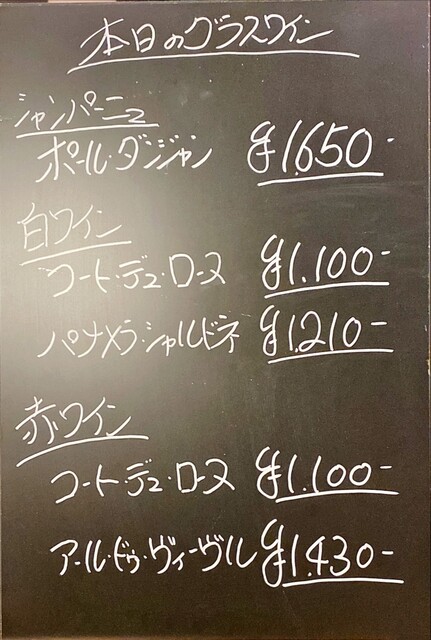 本日のグラスワイン
シャンパーニュ
ポール・ダンジャン ¥1.650-
白ワイン
コート・デュ・ローヌ ¥1.100-
パナメラ・シャルドネ ¥1.210-
赤ワイン
コート・デュ・ローヌ ¥1.100-
アール・ドゥ・ヴィーヴル ¥1.430-